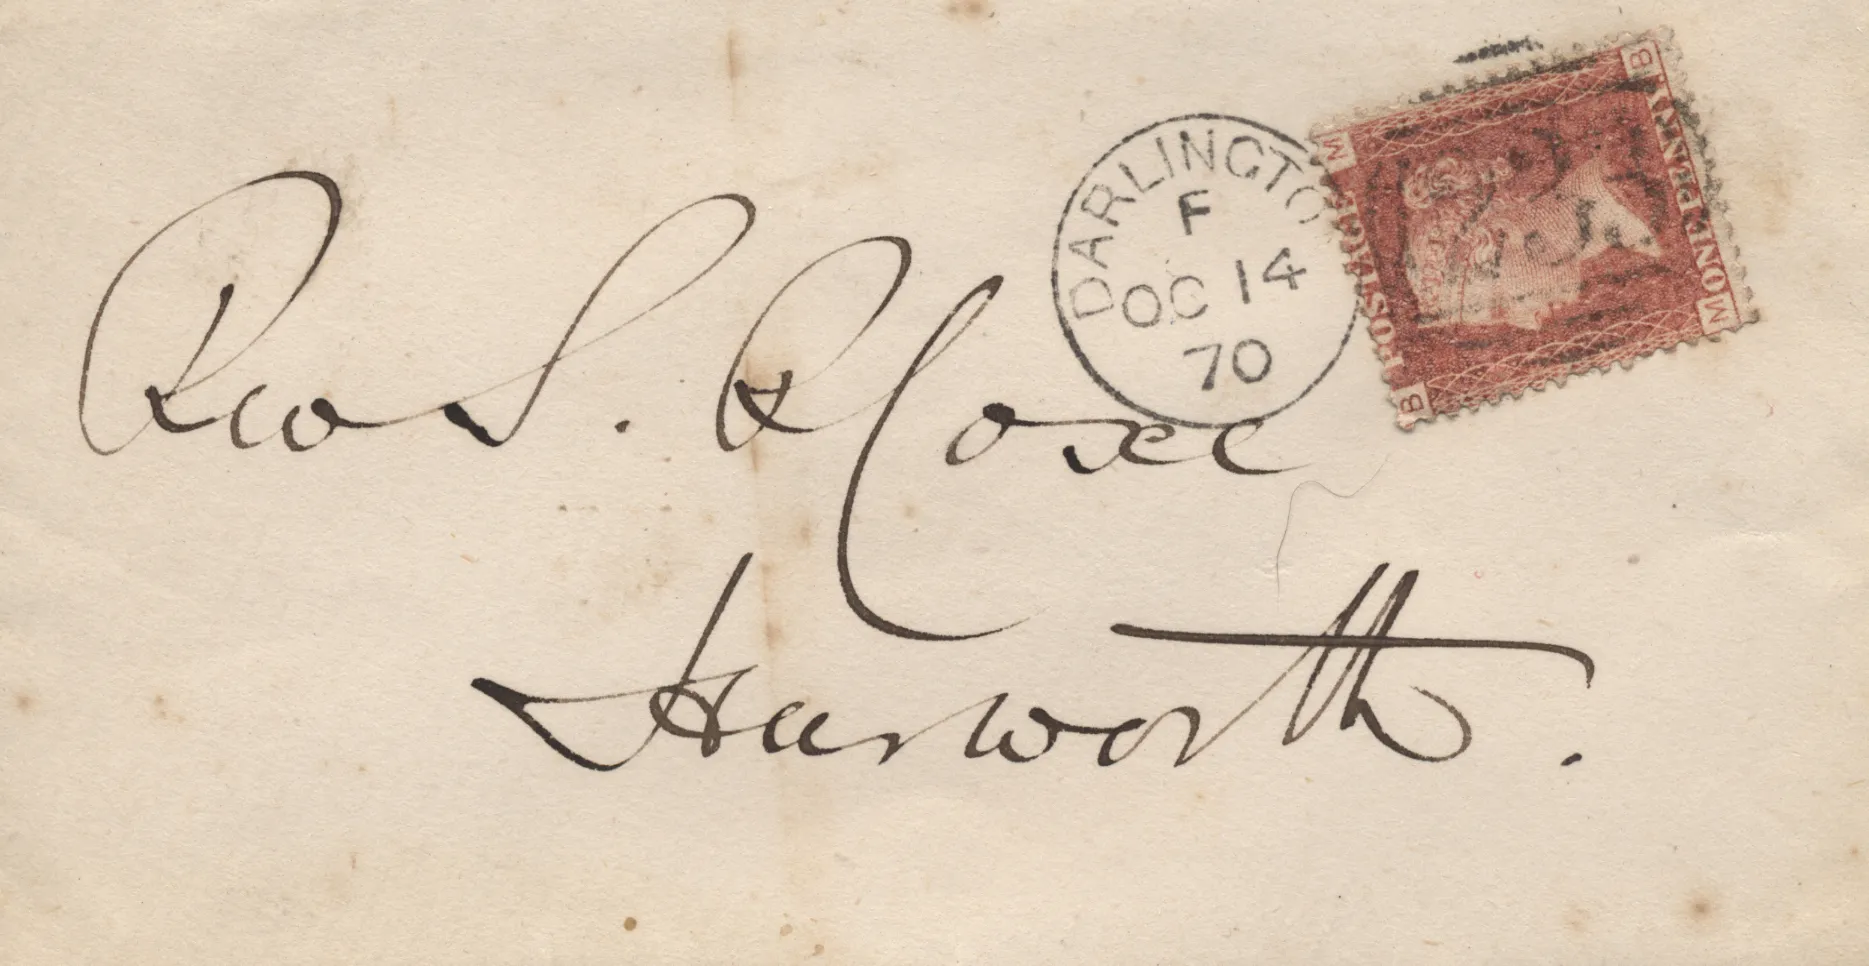 DARLINGTO
F
OC 14
70
B
M
POSTAGE
ONE PENNY
M
B
Rev S.
Hurworth.